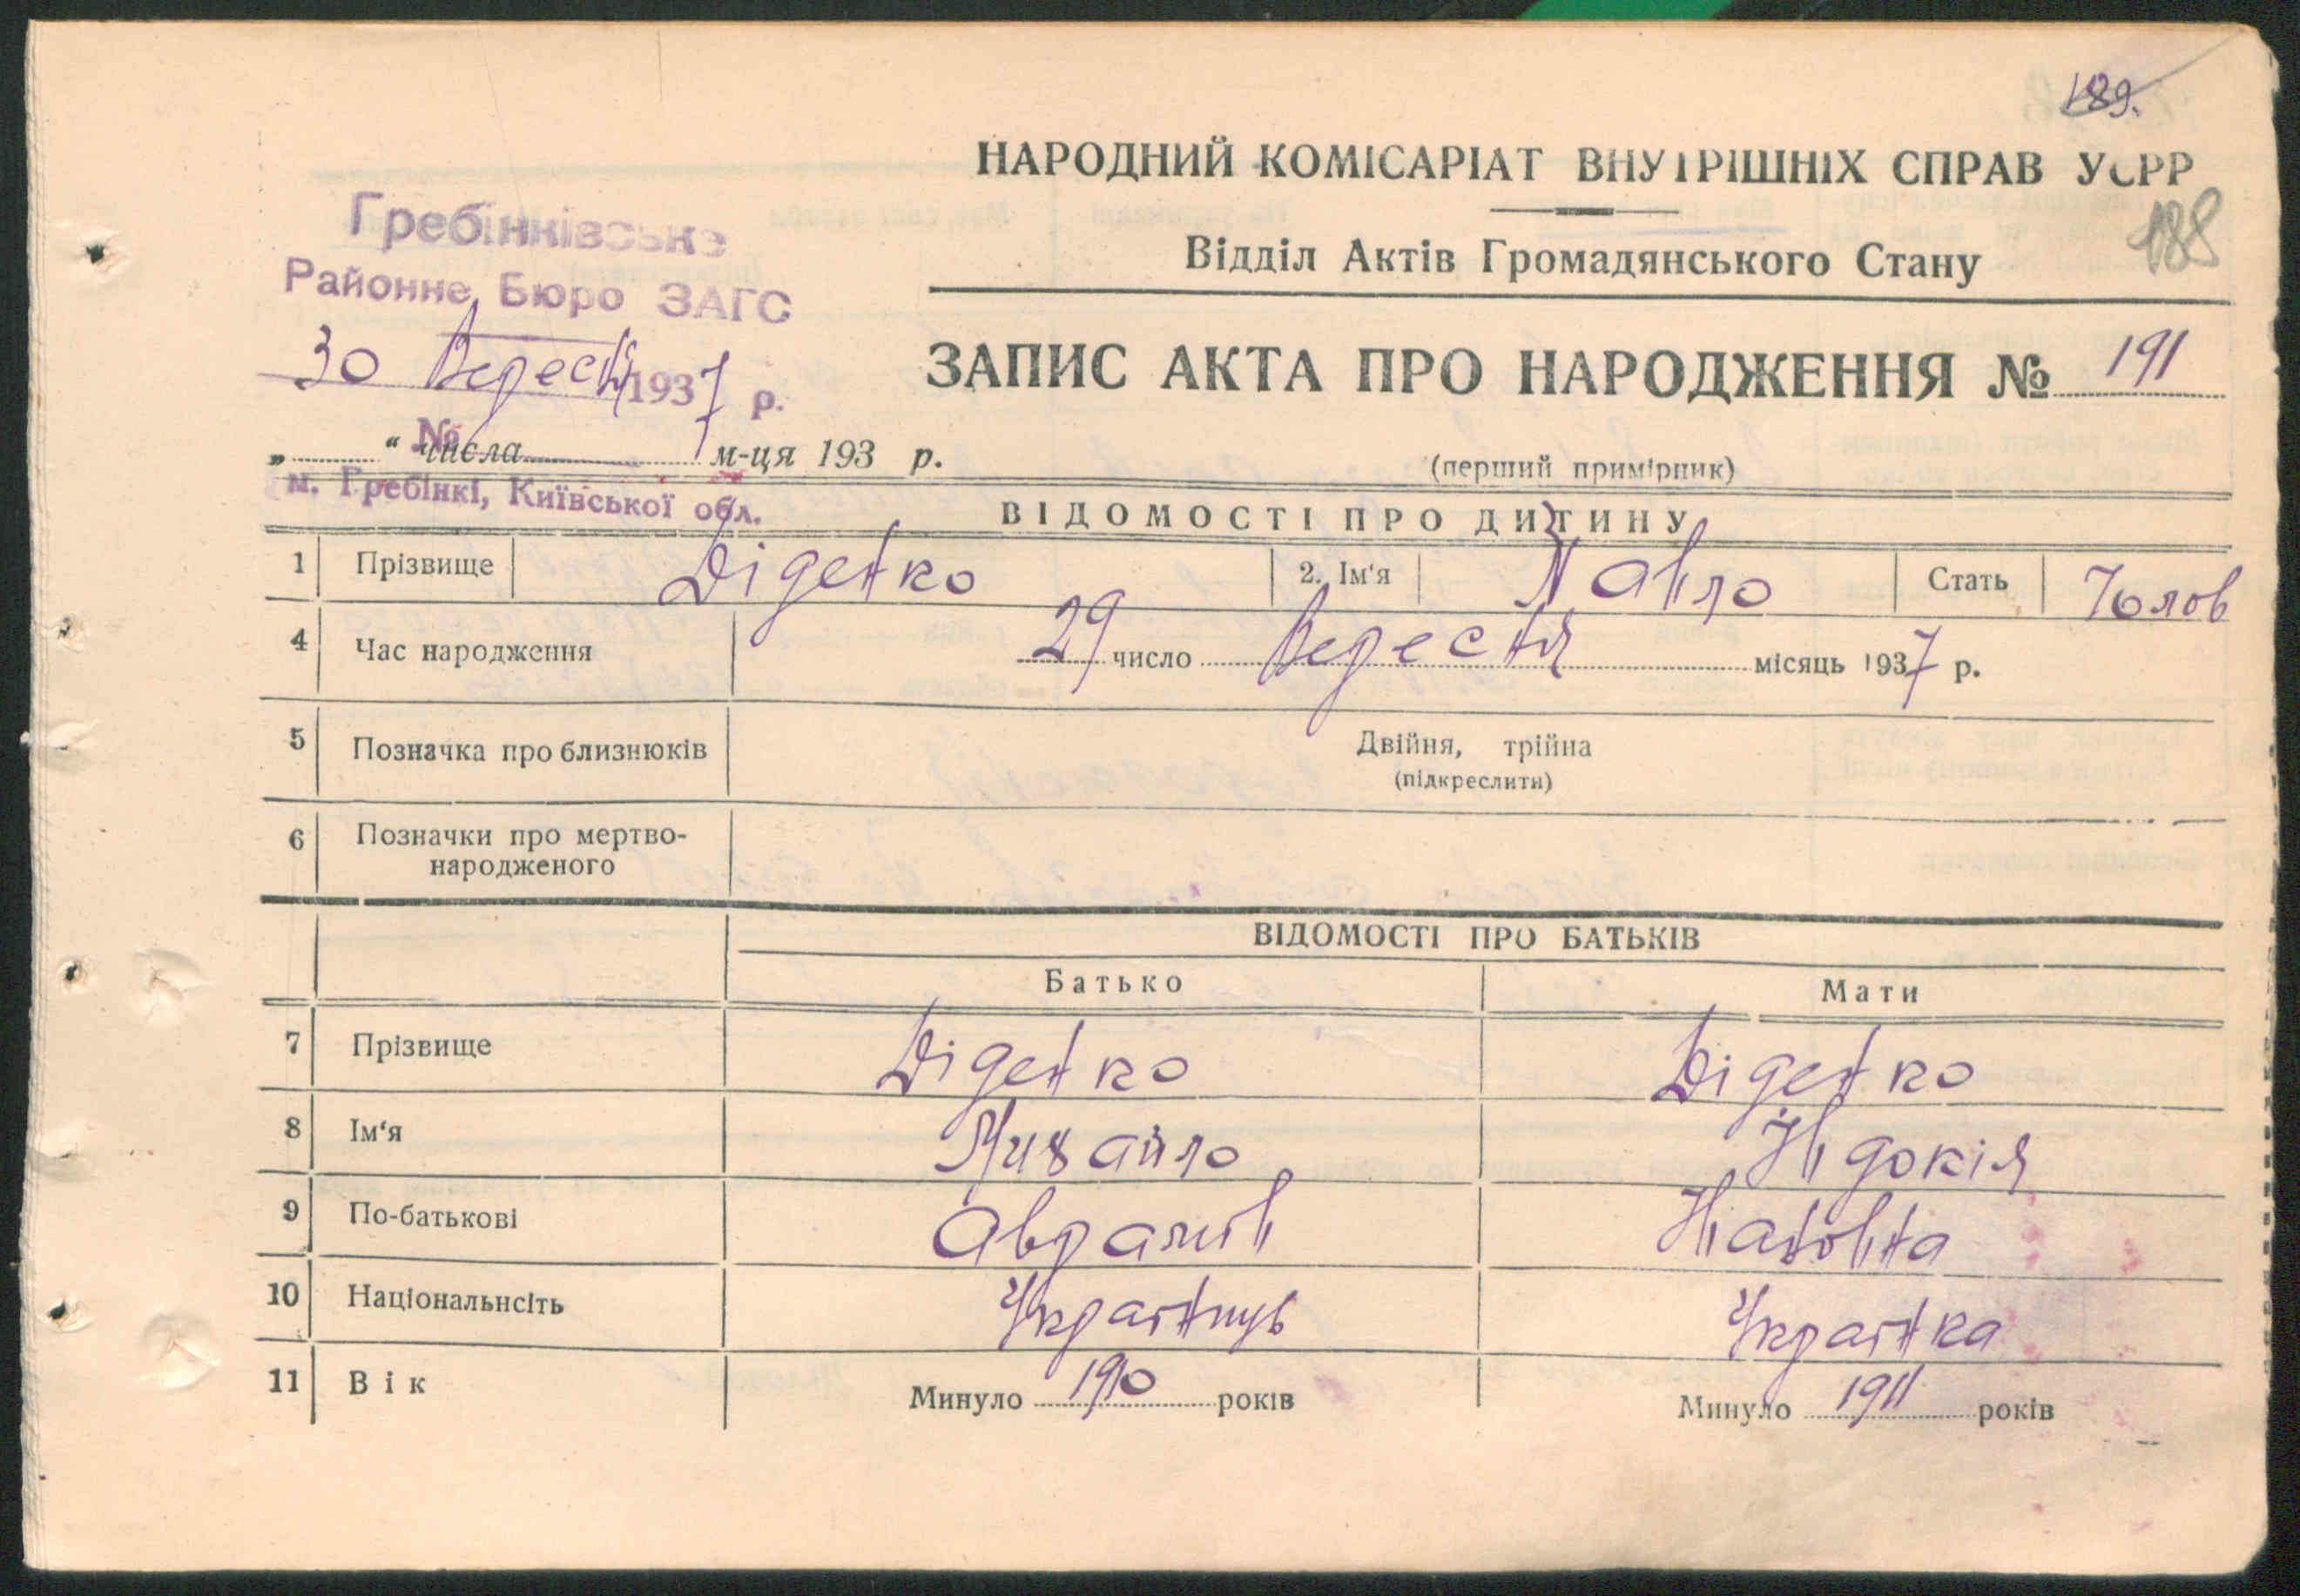 189.
НАРОДНИЙ КОМІСАРІАТ ВНУТРІШНІХ СПРАВ УСРР
188
Відділ Актів Громадянського Стану
Гребінківське
Районне Бюро ЗАГС
30 Вересня 1937 р.
№
ЗАПИС АКТА ПРО НАРОДЖЕННЯ № 191
„ “ числа м-ця 193 р.
(перший примірник)
м. Гребінкі, Київської обл.
ВІДОМОСТІ ПРО ДИТИНУ
1 Прізвище Діденко 2. Ім'я Павло Стать Чолов
4 Час народження 29 число Вересня місяць 1937 р.
5 Позначка про близнюків Двійня, трійна
(підкреслити)
6 Позначки про мертво-
народженого
ВІДОМОСТІ ПРО БАТЬКІВ
Батько Мати
7 Прізвище Діденко Діденко
8 Ім‘я Михайло Івдокія
9 По-батькові Аврамів
10 Національнсіть Українць Українка
11 Вік Минуло 1910 років Минуло 1911 років